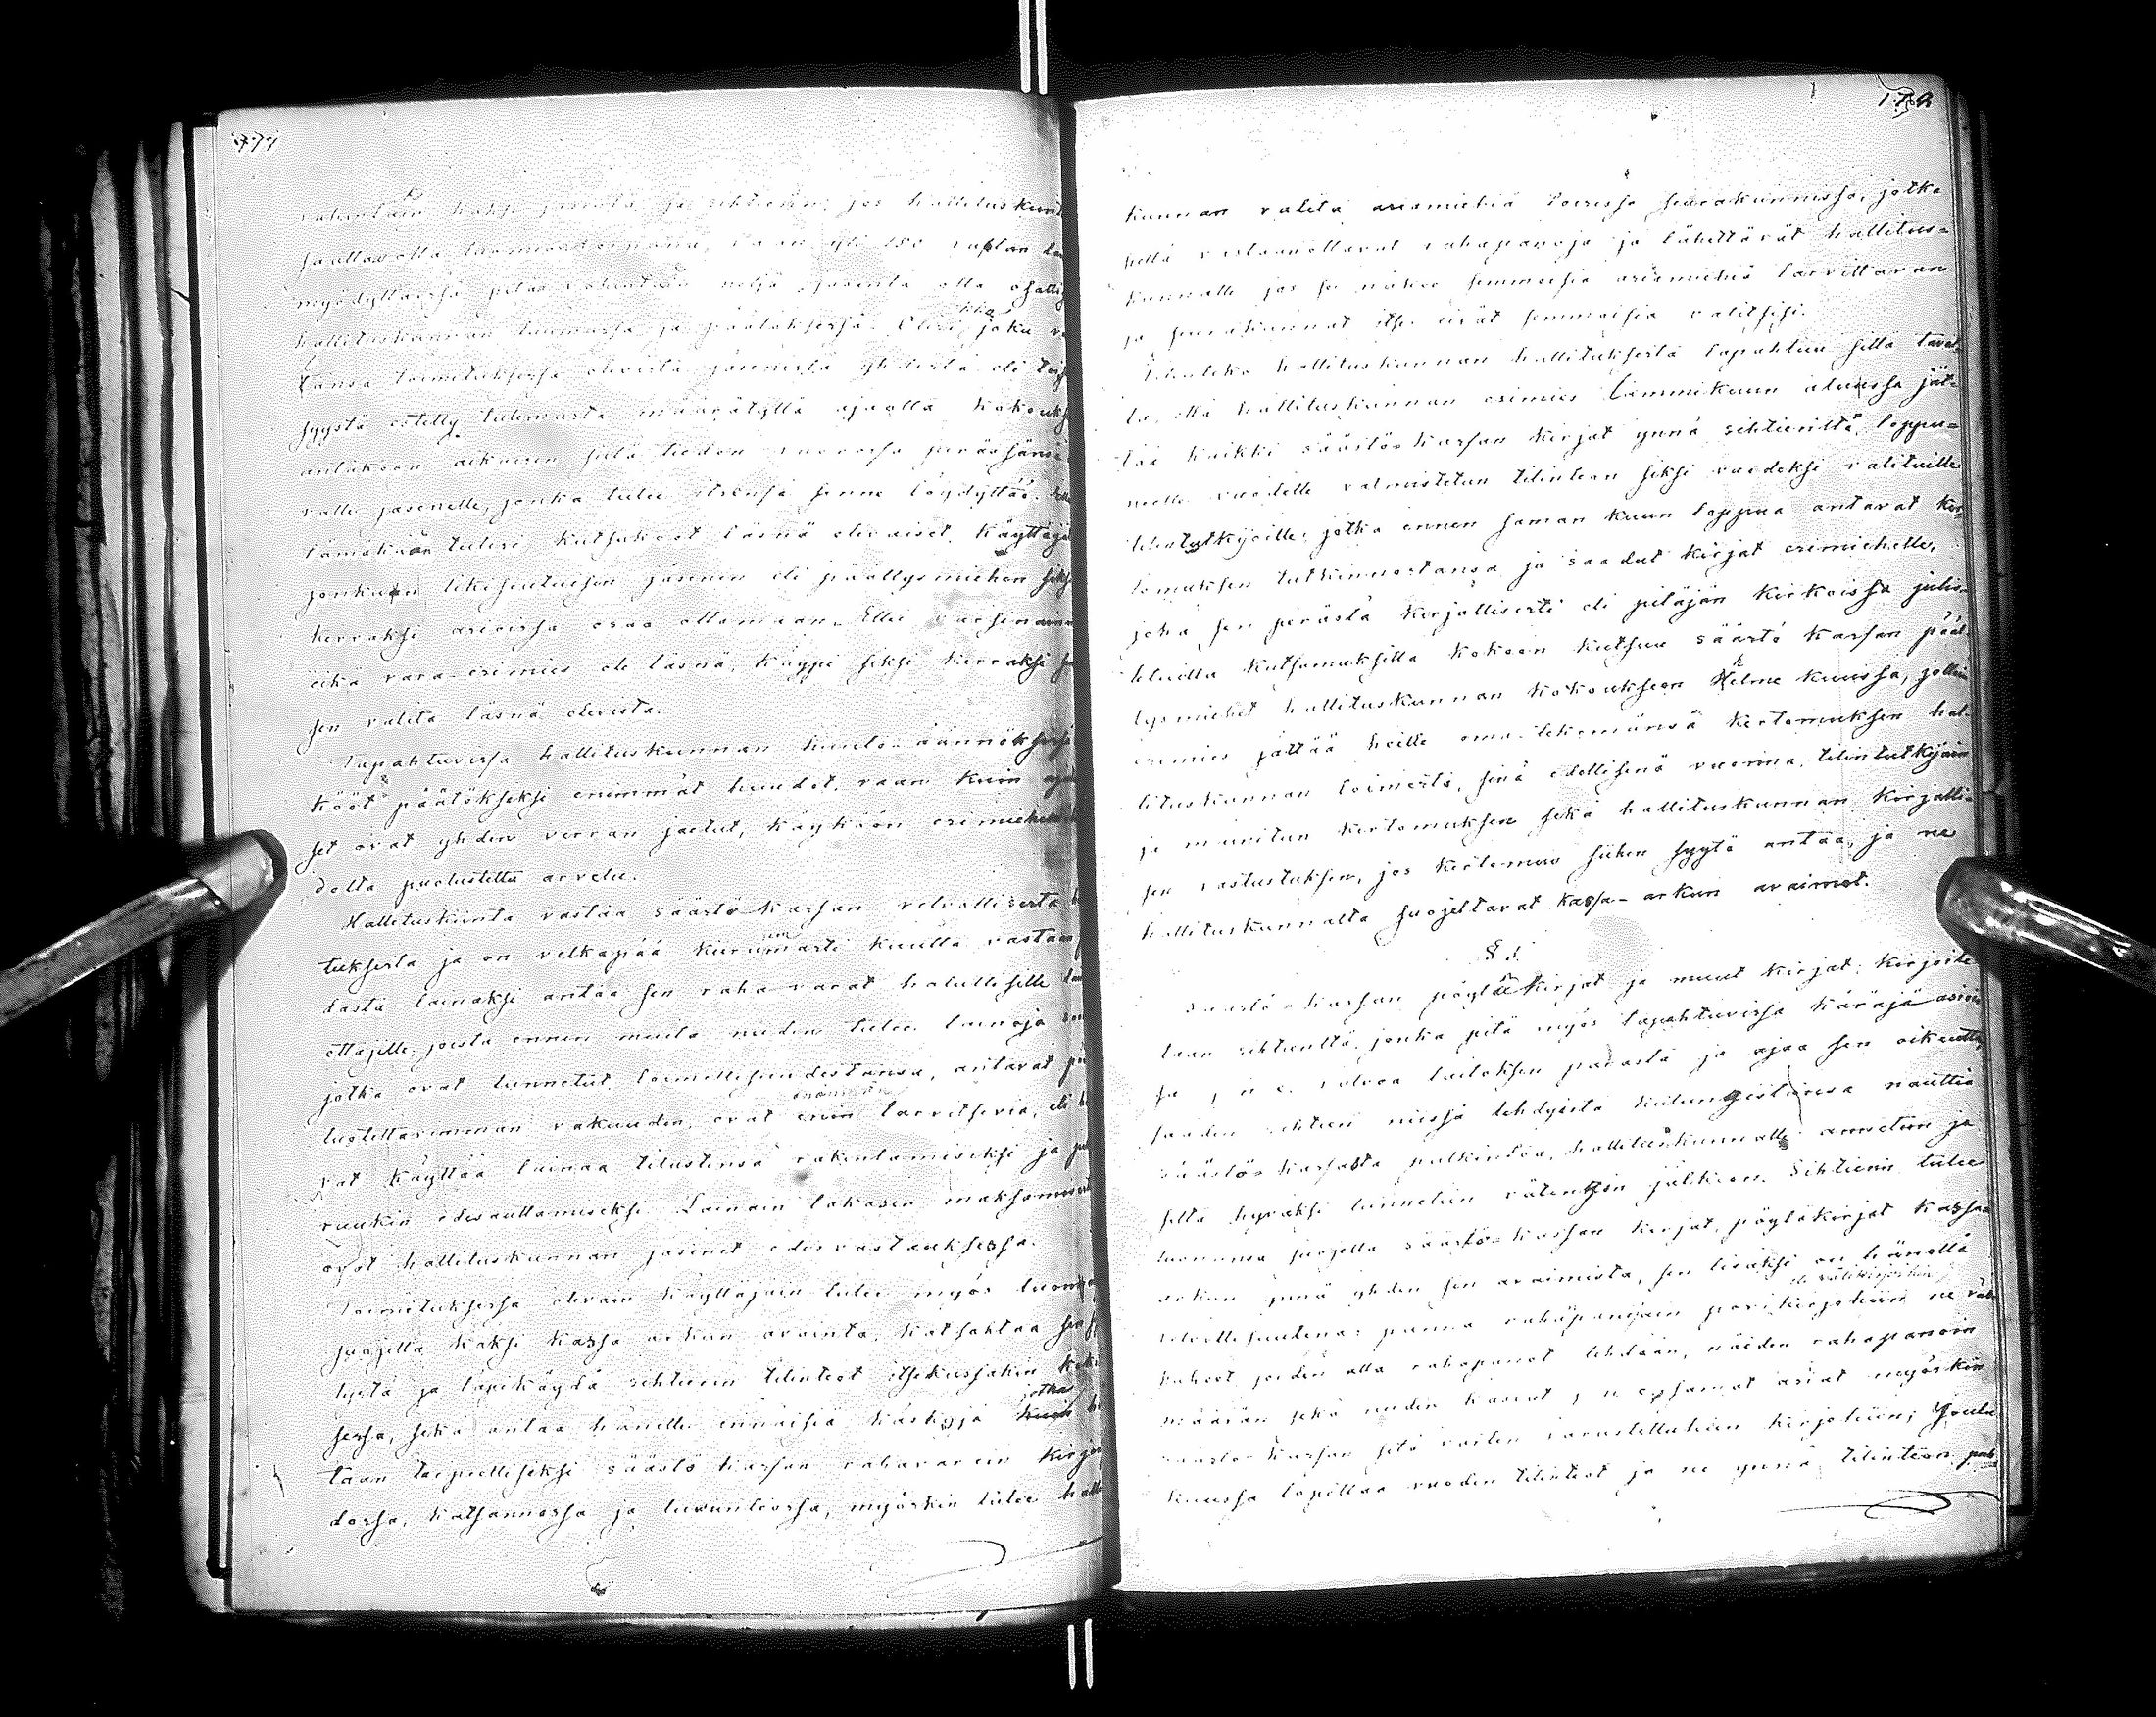 177
vähintäin kaksi jäsentä ja sihtieri; jos hallituskunt
saattavalla luomisedu, vaan yli 150 ruplan lai
myödyttäissä pitää vähintäin neljä jäsentä olla osallis
hallituskunnan luumassa ja päätöksessä. Olisi joku va
tansa toimituksessa olevista jäsenistä yhdestä eli toise
syystä estetty tulemasta määrätyllä ajalla kokouks
antakoon aikaisin siitä tiedon vuorossa peräässänsä
valle jäsenelle, jonka tulee itsensä sinne löydyttää.
lämäkään tulisi kutsukoot läsnä olevaiset käyttäjä
jonkun likeisimmäisen jäsenen eli päällysmiehen siksi
kerraksi asioissa osaa ottamaan. Ellei varsinainen
eikä vara-esimies ole läsnä, käypi siksi kerraksi
sen valita läsnä olevista.
Tapahtuvissa hallituskunnan huuto-äännöksissä
kööt päätökseksi enimmät huudot, vaan kuin
set ovat yhden verran jaetut, käyköön esimiehen
dolta puolustettu arvelu.
Hallituskunta vastaa säästö-kassan velvallisesta
tuksesta ja on velkapää kuru<sup>um</sup>masti kuulla vastaan
dasta lainaksi antaa sen raha-varat halullisille
ottajille, joista ennen muita niiden tulee lainoja
jotka ovat tunnetut toimellisuudestansa, antavat
luotettavimman vakuuden, ovat enimmin tarvitsevia, eli
vat käyttää lainaa tilustensa rakentamiseksi ja
ruukin edesauttamiseksi. Lainain takasin maksamisesta
ovat hallituskunnan jäsenet edesvastauksessa.
Toimituksessa olevain käyttäjäin tulee myös luonansa
suojella kaksi kassa arkun avainta, katsahtaa
tystä ja läpikäydä sihtierin tilinteot itsekussakin koko
sessa, sekä antaa hänelle ennäisiä käskyjä jotka
taan tarpeellisiksi säästö kassan rahavarain kirjan
dossa, katsannossa ja luvunteossa, myöskin tulee hall
178
kunnan valita asiamiehiä toisissa seurakunnissa, jotka
siellä vastaanottavat rahapanoja ja lähettävät hallitus-
kunnalle jos se näkee semmoisia asiamiehiä tarvittavan
ja seurakunnat itse eivät semmoisia valitsisi.
Tilinteko hallituskunnan hallituksesta tapahtuu sillä taval-
la, että hallituskunnan esimies Tammikuun alussa jät-
tää kaikki säästö-kassan kirjat ynnä sihtieriltä loppu-
neelle vuodelle valmistetun tilinteon siksi vuodeksi valituille
tilintutkijoille, jotka ennen saman kuun loppua antavat ker-
tomuksen tutkinnostansa ja saadut kirjat esimiehelle,
joka sen perästä kirjallisesti eli pitäjän kirkoissa julis-
tetuilla kutsumuksilla kokoon kutsuu säästö kassan pääl-
lysmiehet hallituskunnan kokoukseen Helme kuussa, jolloin
esimies jättää heille oma-tekemänsä kertomuksen hal-
lituskunnan toimesta, sinä edellisenä vuonna, tilintutkijain
ja mainitun kertomuksen sekä hallituskunnan kirjalli-
sen vastustuksen, jos kertomus siihen syytä antaa, ja ne
hallituskunnalta suojeltavat kassa-arkun avaimet.
§ 5.
Säästö-kassan pöytäkirjat ja muut kirjat kirjoite-
taan sihtieriltä, jonka pitä myös tapahtuvissa käräjä-asioi
sa, n.e. valvoa laitoksen parasta ja ajaa sen oikeutta,
saaden sihtieri niissä tehdyistä kulungeistansa nauttia
säästö-kassasta palkintoa, hallituskunnalle annetun ja
siltä hyväksi tunnetun rätingin jälkeen. Sihtierin tulee
luonansa suojella säästö-kassan kirjat, pöytäkirjat kassa-
arkun ynnä yhden sen avaimista, sen lisäksi on hänellä
velvollisuutena: panna rahapanijain panikirjoihin eli välikirjoihin ne rät-
tukset joiden alla rahapanot tehdään, näiden rahapanoin
määrän sekä niiden kasvut, n. e. samat asiat myöskin
säästö-kassan sitä varten varustettuihin kirjoihin; Joulu
kuussa lopettaa vuoden tilinteot ja ne ynnä tilinteon